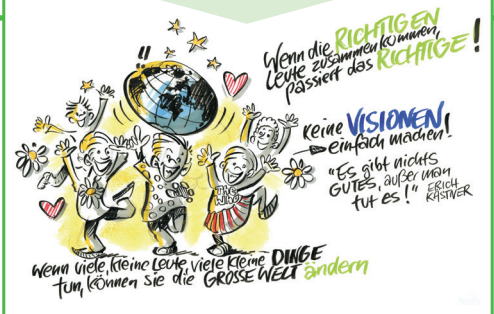 Wenn die RICHTIGEN
Leute zusammen kommen,
passiert das RICHTIGE!
Keine VISIONEN
einfach machen!
"Es gibt nichts
GUTES, außer man
tut es!" ERICH
KÄSTNER
The
Who
Wenn viele, kleine Leute, viele kleine DINGE
tun, können sie die GROSSE WELT ändern